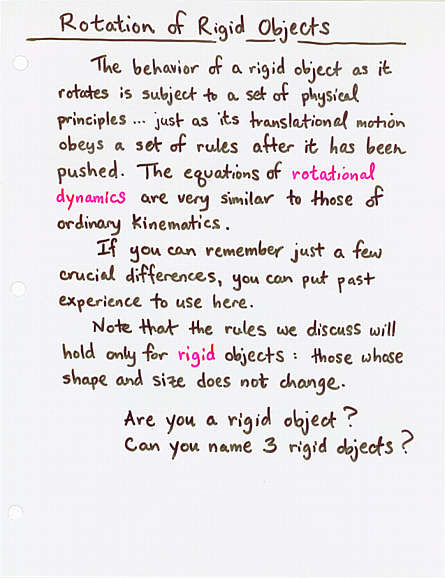 Rotation of Rigid Objects
The behavior of a rigid object as it
rotates is subject to a set of physical
principles ... just as its translational motion
obeys a set of rules after it has been
pushed. The equations of rotational
dynamics are very similar to those of
ordinary kinematics.
If you can remember just a few
crucial differences, you can put past
experience to use here.
Note that the rules we discuss will
hold only for rigid objects: those whose
shape and size does not change.
Are you a rigid object?
Can you name 3 rigid objects?